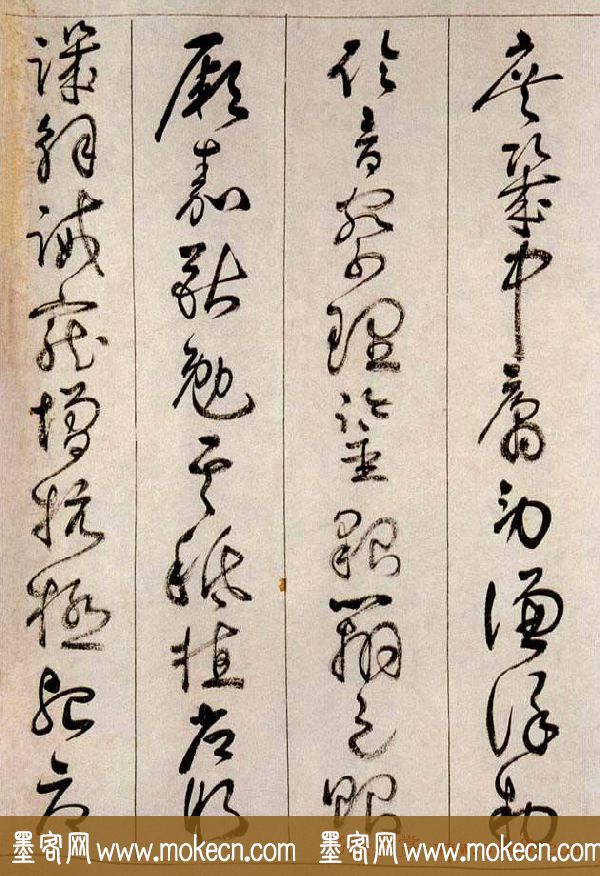 庶幾中庸勞謙謹敕
聆音察理鑒貌辨色貽
厥嘉猷勉其祗植省躬
譏誡寵增抗極殆辱
墨客网 www.mokecn.com 墨客网 www.mokecn.com